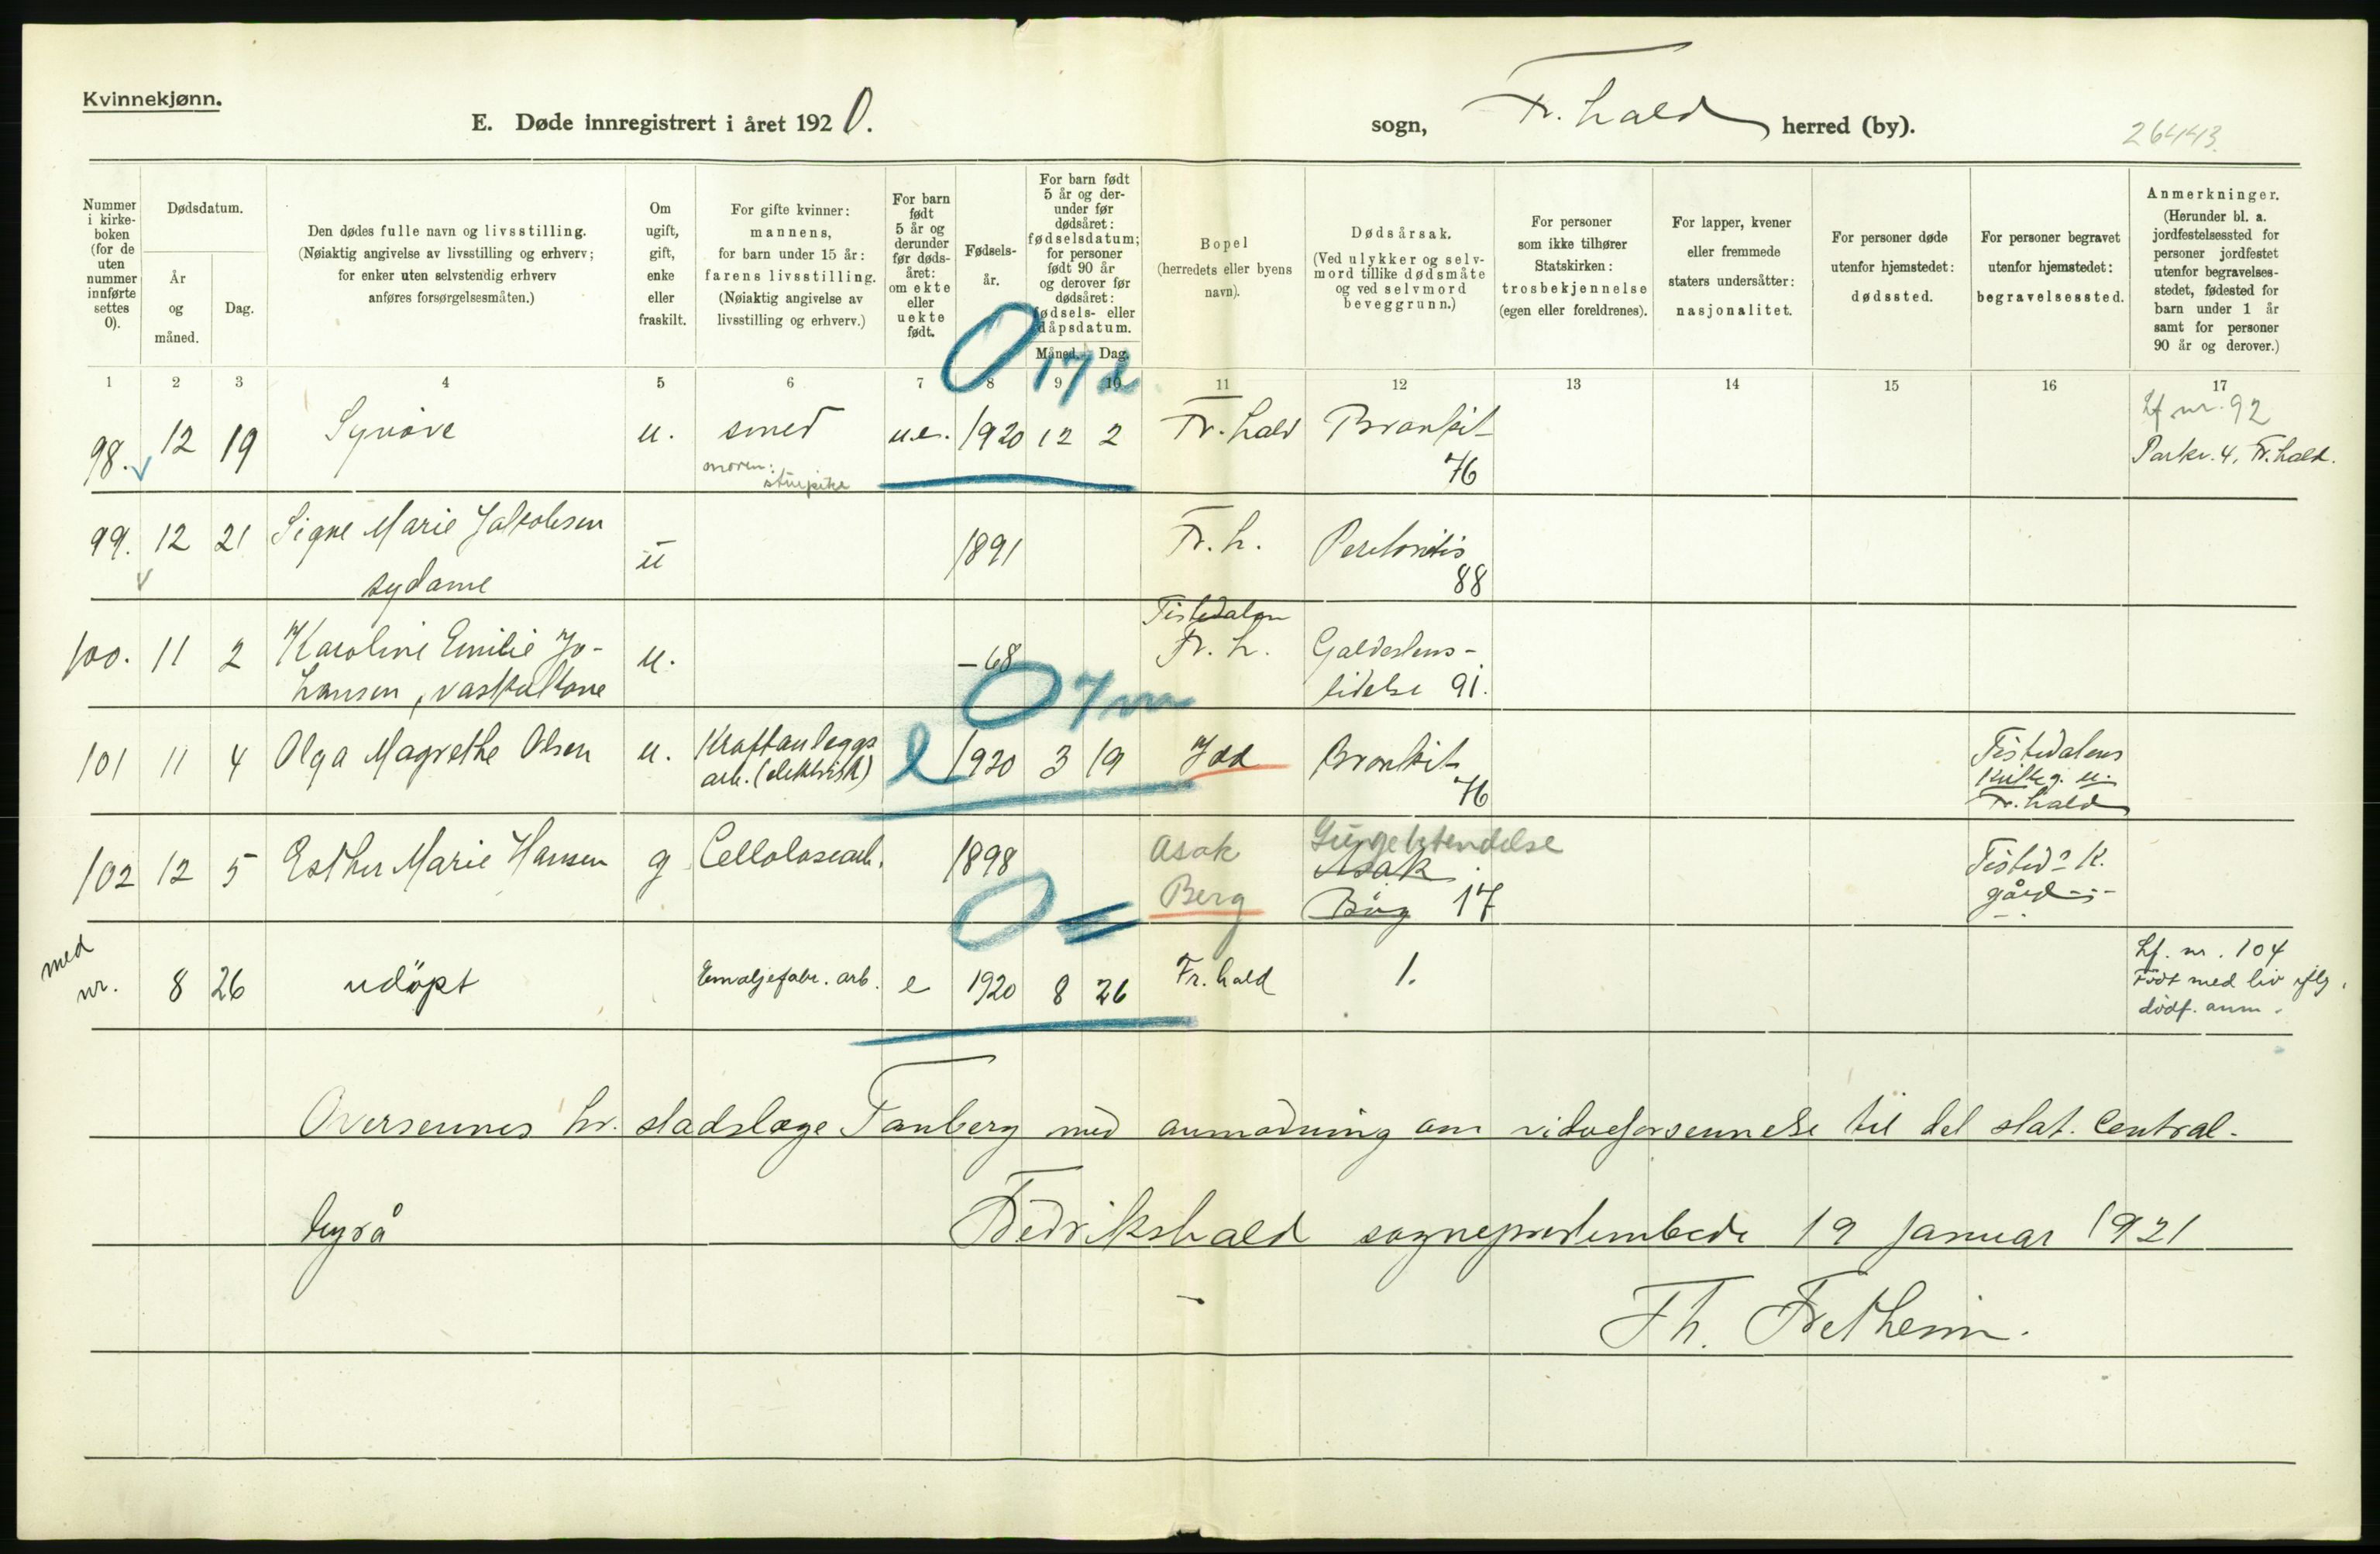 Kvinnekjønn.
E. Døde innregistrert i året 1920.
sogn, Fr.hald herred (by).
26443.
Nummer i kirkeboken (for de uten nummer innførte settes 0).
Dødsdatum.
År og måned.
Dag.
Den dødes fulle navn og livsstilling.
(Nøiaktig angivelse av livsstilling og erhverv;
for enker uten selvstendig erhverv
anføres forsørgelsesmåten.)
Om ugift, gift, enke eller fraskilt.
For gifte kvinner:
mannens,
for barn under 15 år:
farens livsstilling.
(Nøiaktig angivelse av
livsstilling og erhverv.)
For barn født 5 år og derunder før dødsåret: om ekte eller uekte født.
Fødselsår.
For barn født 5 år og derunder før dødsåret: fødselsdatum; for personer født 90 år og derover før dødsåret: fødsels- eller dåpsdatum.
Måned. Dag.
Bopel
(herredets eller byens navn).
Dødsårsak.
(Ved ulykker og selvmord tillike dødsmåte og ved selvmord beveggrunn.)
For personer som ikke tilhører Statskirken: trosbekjennelse (egen eller foreldrenes).
For lapper, kvener eller fremmede staters undersåtter: nasjonalitet.
For personer døde utenfor hjemstedet: dødssted.
For personer begravet utenfor hjemstedet: begravelsessted.
Anmerkninger.
(Herunder bl. a. jordfestelsessted for personer jordfestet utenfor begravelsesstedet, fødested for barn under 1 år samt for personer 90 år og derover.)
1 2 3 4 5 6 7 8 9 10 11 12 13 14 15 16 17
0 17 d
98. 12 19 Synöve u. smed u.e. 1920 12 2 Fr. hald Bronkit 76 Lf nr. 92
moren: Parkv. 4, Fr.hald.
99. 12 21 Signe Marie Jakobsen u 1891 Fr. h. Peritonitis 88
sydame
100. 11 2 Karoline Emilie Jo- u. -68 Tistedalen Fr. h. Galdestens-
hansen, vaskekone lidelse 91.
0 7 m
101 11 4 Olga Magrethe Olsen u. Kraftanleggs e 1920 3 19 Idd Bronkit 76 Tistedalens
arb. (elektrisk) Fr.hald
102 12 5 Esther Marie Hansen g Celluloseearb. 1898 Asak Berg Asak 17 Tisted. K.
gård
0
med nr. 8 26 udöpt Emaljefabr. arb. e 1920 8 26 Fr. hald 1. Lf. nr. 104
Födt med liv iflg.
dödf. anm.
Oversennes hr. stadslæge Tanberg med anmodning om videreforsennelse til det stat. Central-
byrå Fredrikshald sogneprestembede 19 januar 1921
Th. Fretheim.